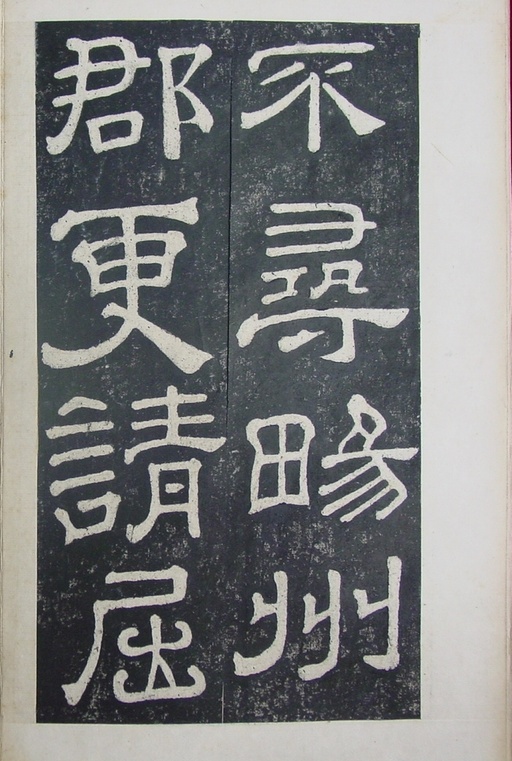 不尋畼州
郡更請屈